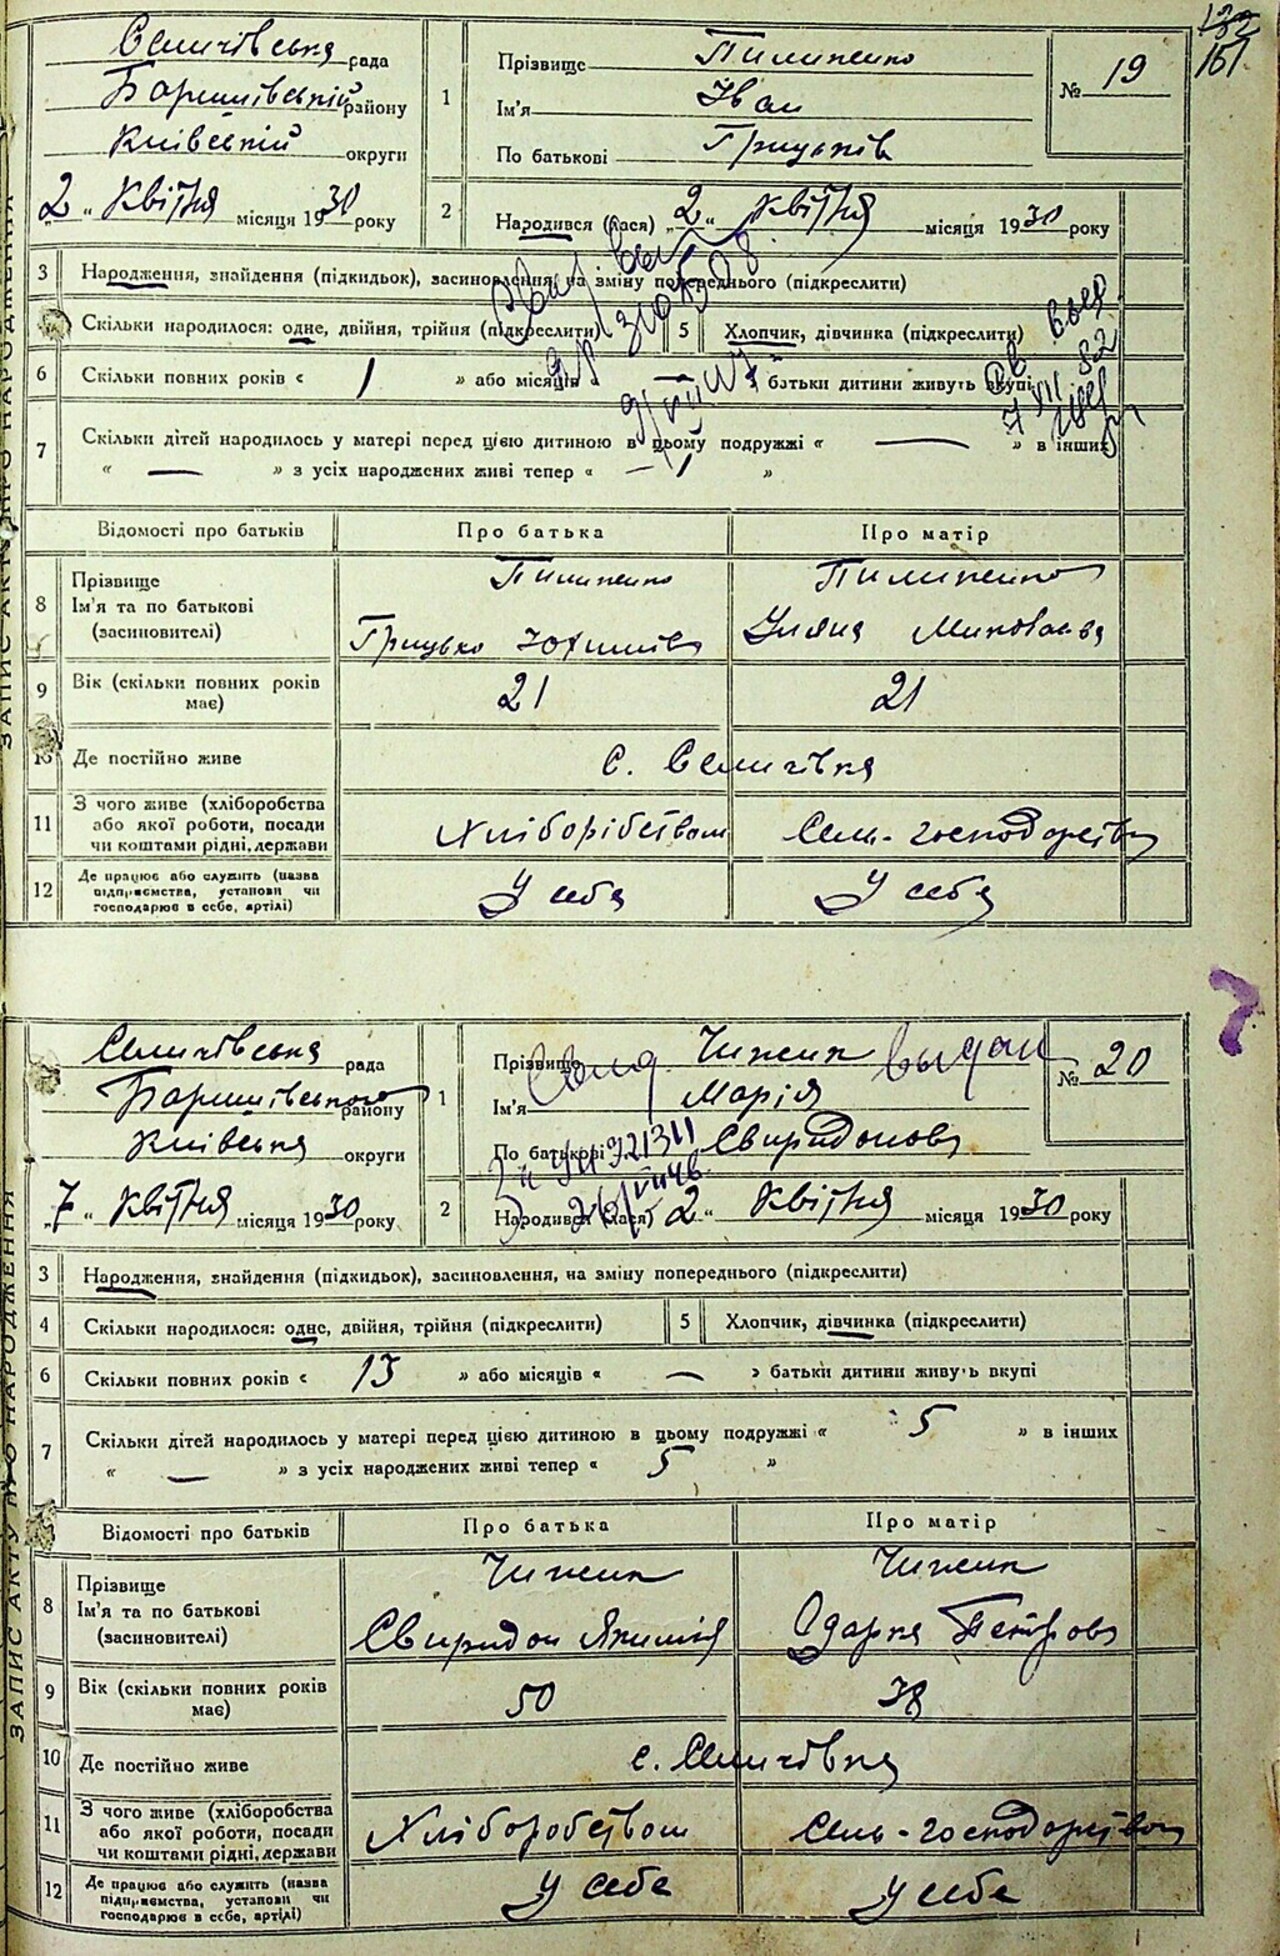 132
161
Селичівська рада
Баришівській району
Київській округи
„2“ Квітня місяця 1930 року
1
Прізвище Пилипенко
Ім'я Іван
По батькові Грицьків
№ 19
2
Народився (лася) „2“ Квітня місяця 1930 року
3 Народження, знайдення (підкидьок), засиновлення, на зміну попереднього (підкреслити)
Скільки народилося: одне, двійня, трійня (підкреслити)
5 Хлопчик, дівчинка (підкреслити)
6 Скільки повних років « 1 » або місяців « — » батьки дитини живуть вкупі
7 Скільки дітей народилось у матері перед цією дитиною в цьому подружжі « — » в інших
« — » з усіх народжених живі тепер « — »
Відомості про батьків Про батька Про матір
8 Прізвище
Ім'я та по батькові
(засиновителі)
Пилипенко
Грицько Юхимів
Пилипенко
Уляна Миколаєва
9 Вік (скільки повних років має) 21 21
10 Де постійно живе с. Селичівка
11 З чого живе (хліборобства
або якої роботи, посади
чи коштами рідні, держави
Хліборібством
Сель-господорство
12 Де працює або служить (назва
підприємства, установи чи
господарює в себе, артілі)
У себя
У себя
ЗАПИС АКТУ ПРО НАРОДЖЕННЯ
7
Селичівська рада
Баришівського району
Київська округи
„7“ Квітня місяця 1930 року
1
Прізвище Чижик
Ім'я Марія
По батькові Свиридонова
выдан
№ 20
2
Народився (лася) „2“ Квітня місяця 1930 року
3 Народження, знайдення (підкидьок), засиновлення, на зміну попереднього (підкреслити)
4 Скільки народилося: одне, двійня, трійня (підкреслити)
5 Хлопчик, дівчинка (підкреслити)
6 Скільки повних років « 13 » або місяців « — » батьки дитини живуть вкупі
7 Скільки дітей народилось у матері перед цією дитиною в цьому подружжі « 5 » в інших
« — » з усіх народжених живі тепер « 5 »
Відомості про батьків Про батька Про матір
8 Прізвище
Ім'я та по батькові
(засиновителі)
Чижик
Свиридон Якимів
Чижик
Одарка Петрова
9 Вік (скільки повних років має) 50 38
10 Де постійно живе с. Селичівка
11 З чого живе (хліборобства
або якої роботи, посади
чи коштами рідні, держави
Хліборобством
Сель-господорством
12 Де працює або служить (назва
підприємства, установи чи
господарює в себе, артілі)
У себе
У себе
ЗАПИС АКТУ ПРО НАРОДЖЕННЯ